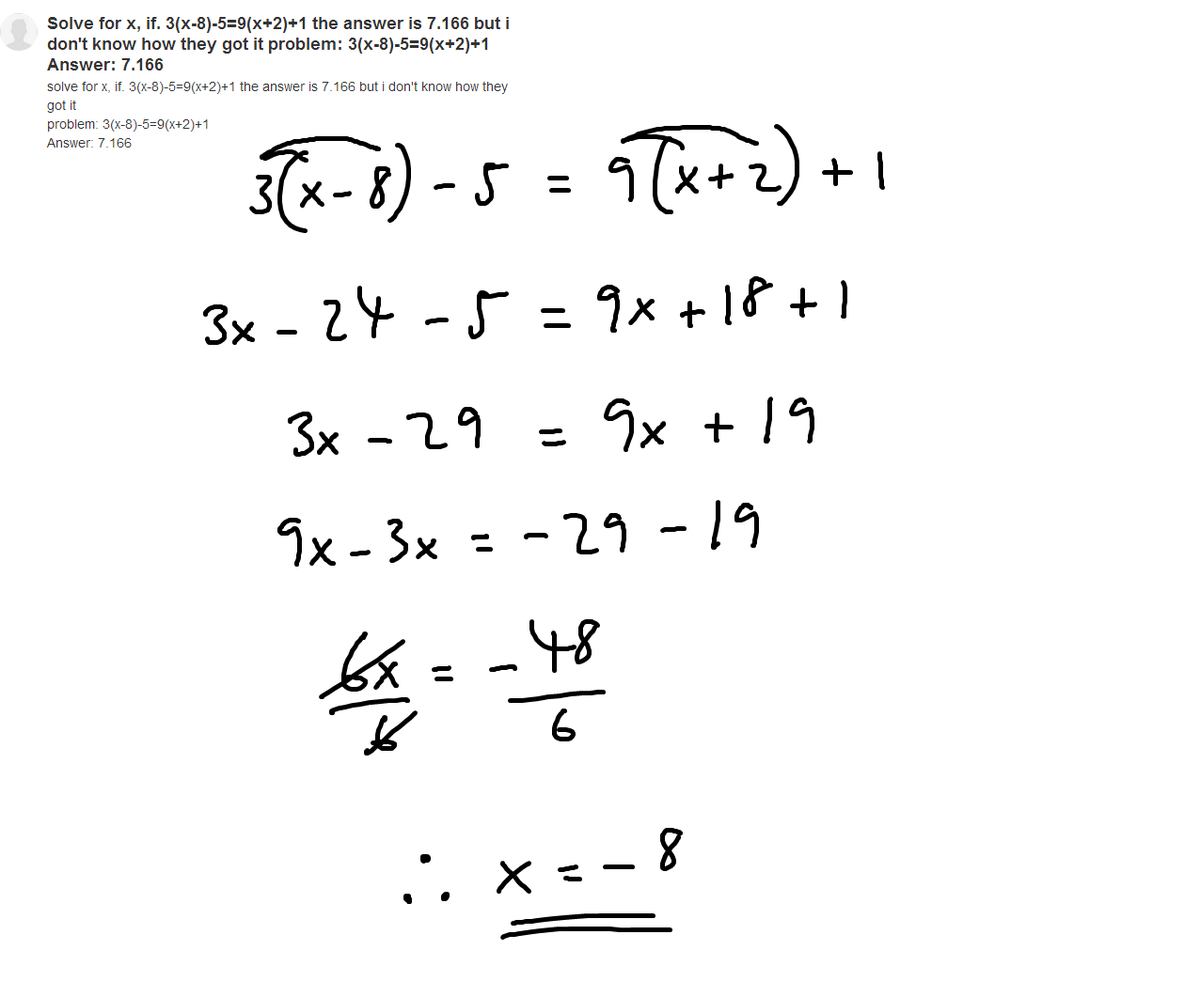 Solve for x, if. 3(x-8)-5=9(x+2)+1 the answer is 7.166 but i
don't know how they got it problem: 3(x-8)-5=9(x+2)+1
Answer: 7.166
solve for x, if. 3(x-8)-5=9(x+2)+1 the answer is 7.166 but i don't know how they
got it
problem: 3(x-8)-5=9(x+2)+1
Answer: 7.166
3(x-8) - 5 = 9(x+2) + 1
3x - 24 - 5 = 9x + 18 + 1
3x - 29 = 9x + 19
9x - 3x = -29 - 19
6x = -48
6 6
∴ x = -8